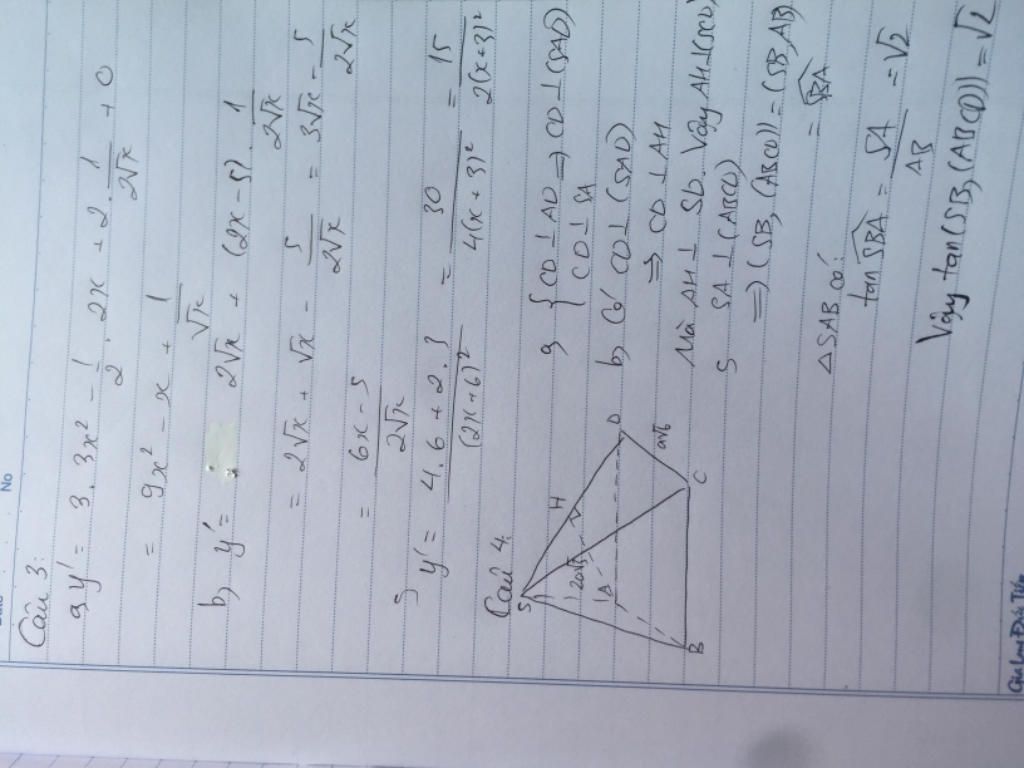 No
Câu 3:
a, y' = 3. 3x² - 1/2 . 2x + 2. 1/(2√x) + 0
= 9x² - x + 1/√x
b, y' = 2√x + (2x-5). 1/(2√x)
= 2√x + √x - 5/(2√x) = 3√x - 5/(2√x)
= (6x-5)/(2√x)
y' = (4.6 + 2.3)/(2x+6)² = 30/(4(x+3)²) = 15/(2(x+3)²)
Câu 4.
S
H
D
B
C
a√6
a, { CD ⊥ AD ⇒ CD ⊥ (SAD)
CD ⊥ SA
b, Có CD ⊥ (SAD)
⇒ CD ⊥ AH
Mà AH ⊥ SD. Vậy AH ⊥ (SCD)
SA ⊥ (ABCD)
⇒ (SB, (ABCD)) = (SB, AB)
= SBA
△SAB có:
tan SBA = SA/AB = √2
Vậy tan (SB, (ABCD)) = √2